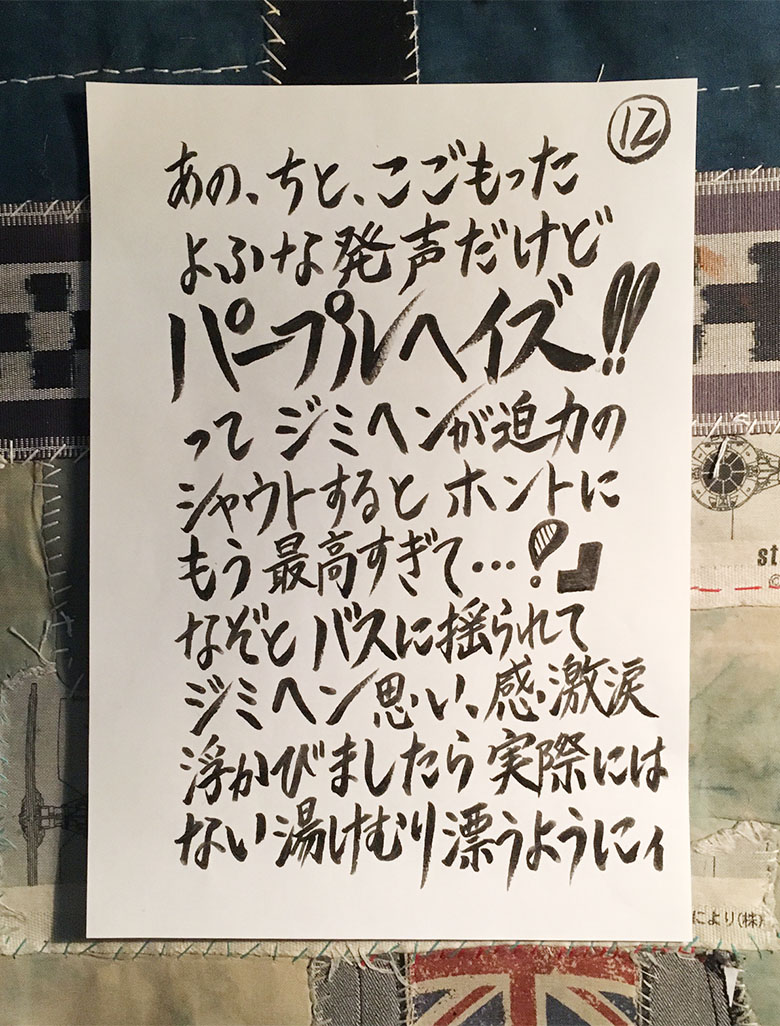 12
あの、ちと、こごもった
よふな発声だけど
パープルヘイズ!!
って ジミヘンが迫力の
シャウトすると ホントに
もう 最高すぎて…?」
なぞと バスに揺られて
ジミヘン思い、感激涙
浮かびましたら 実際には
ない湯けむり漂うようにィ
st
©
により(株)